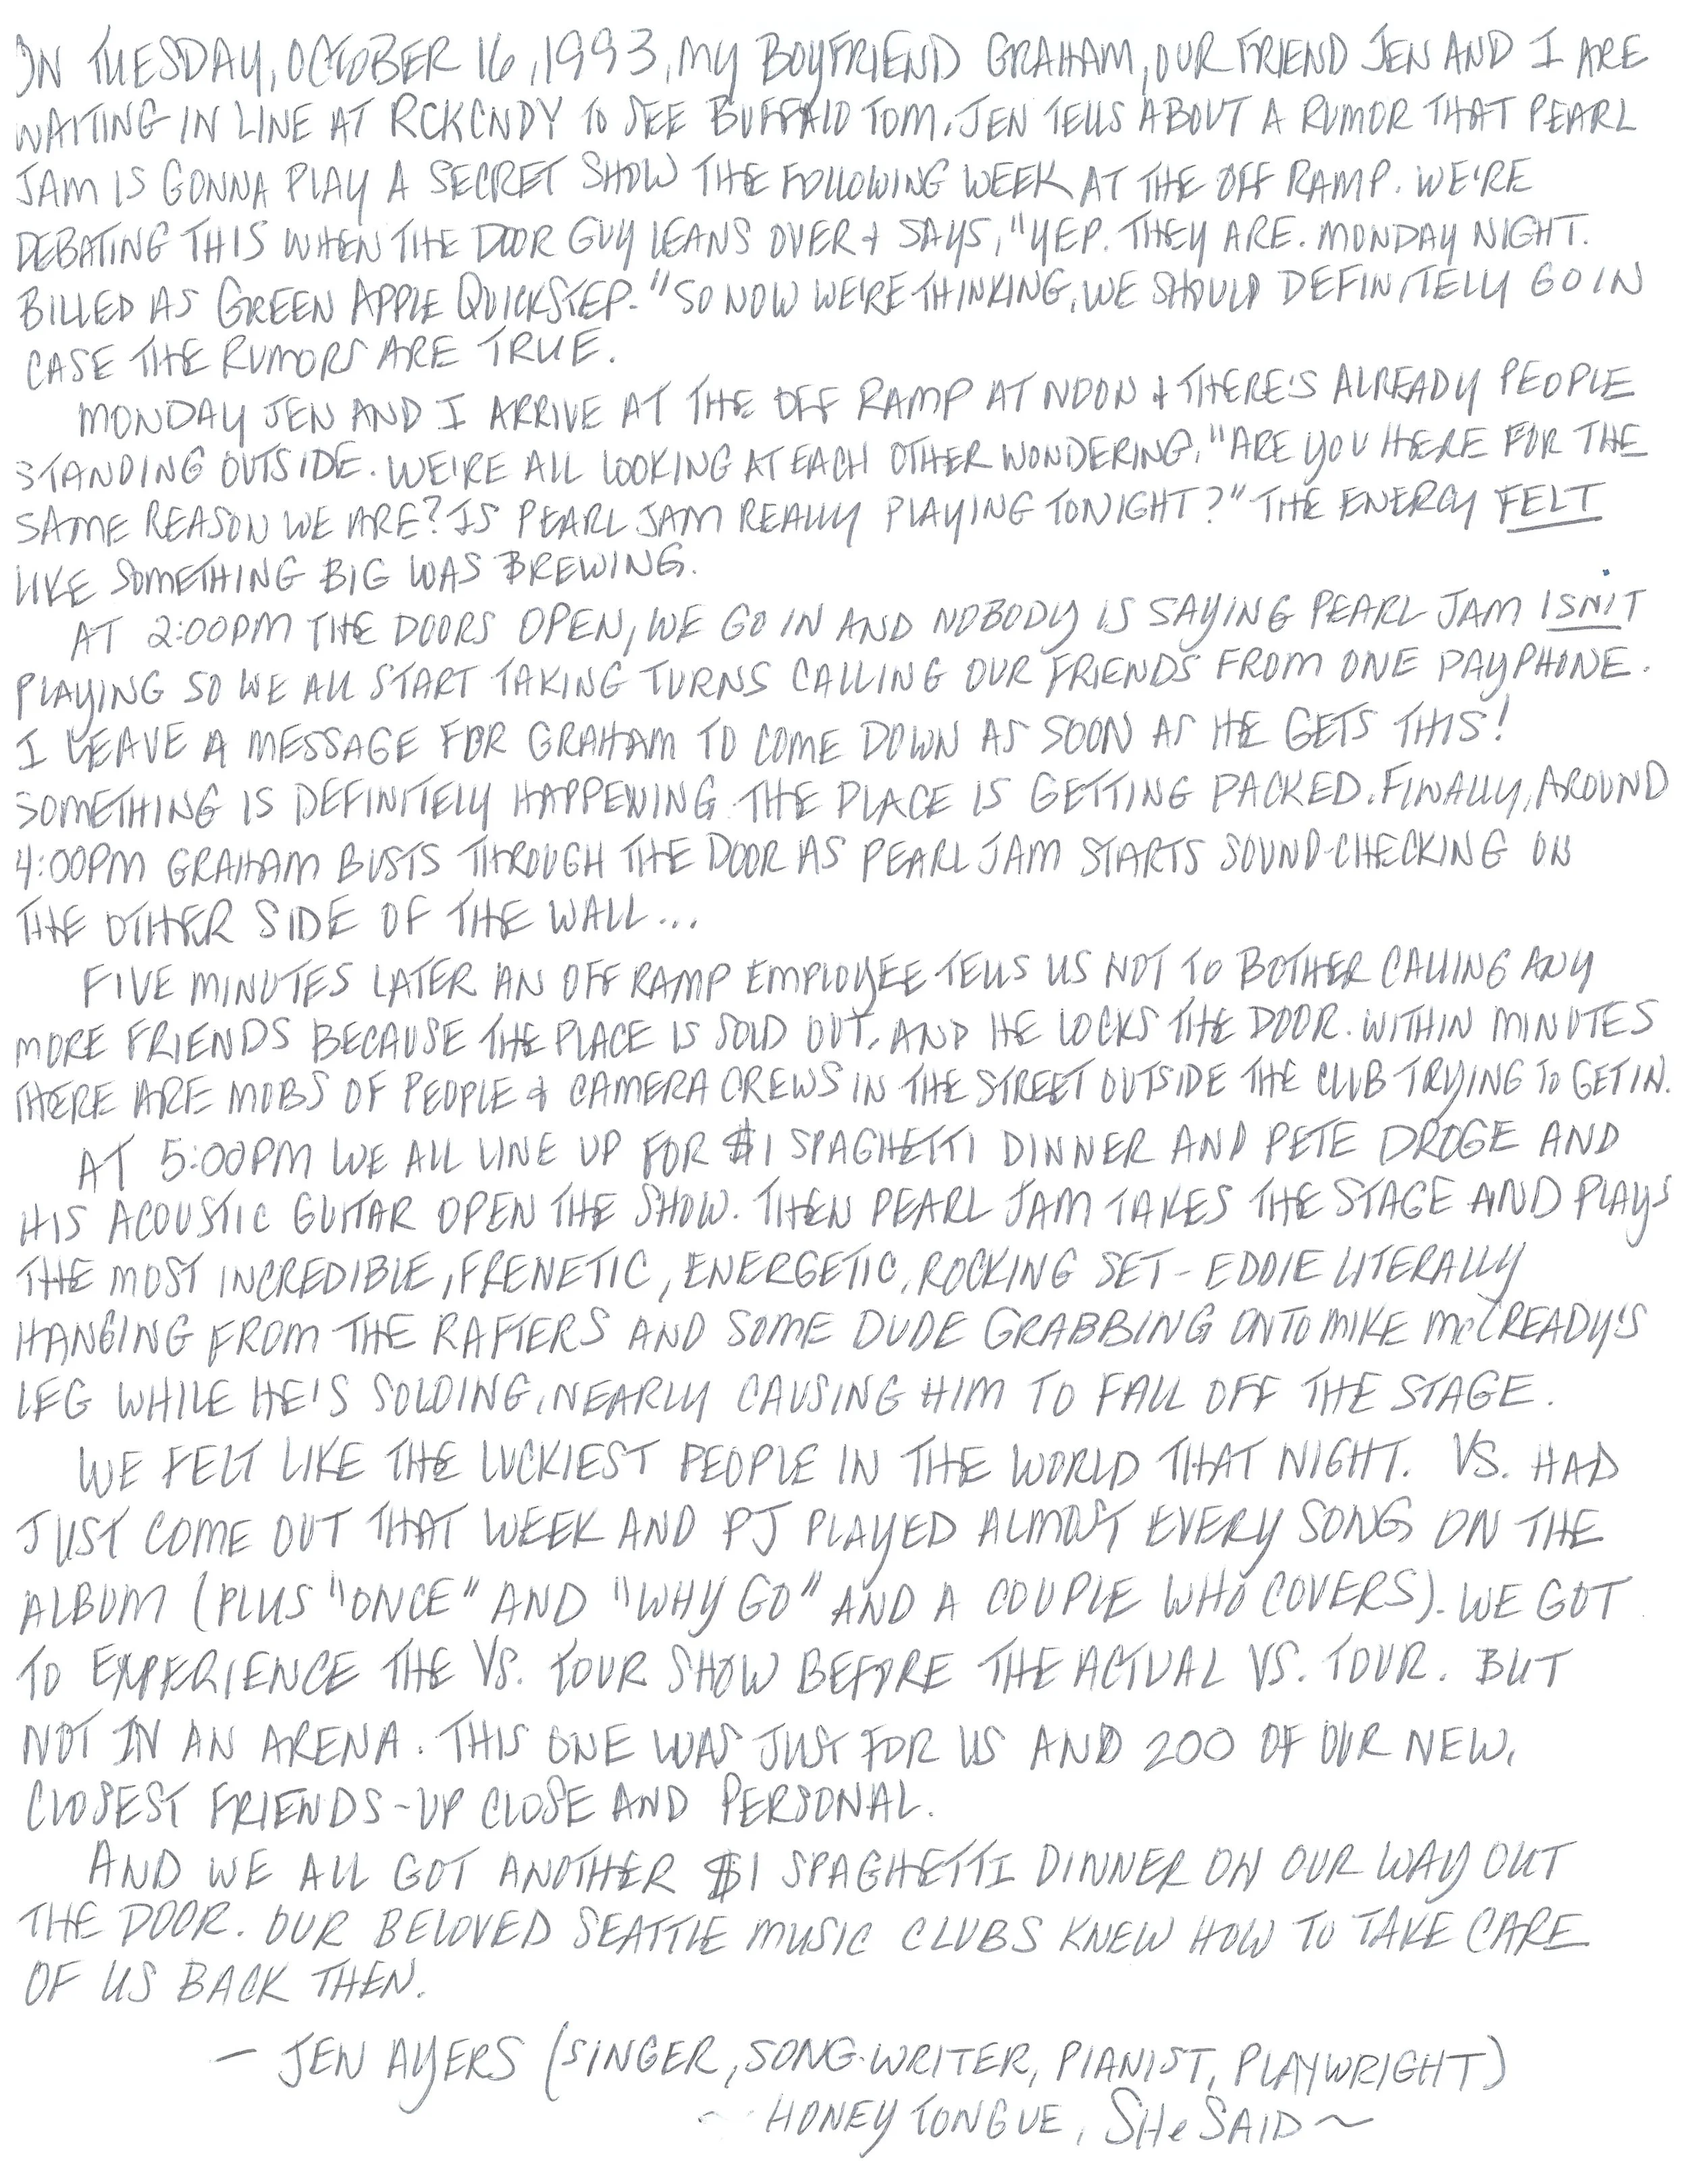 ON TUESDAY, OCTOBER 16, 1993, MY BOYFRIEND GRAHAM, OUR FRIEND JEN AND I ARE
WAITING IN LINE AT RCKCNDY TO SEE BUFFALO TOM. JEN TELLS ABOUT A RUMOR THAT PEARL
JAM IS GONNA PLAY A SECRET SHOW THE FOLLOWING WEEK AT THE OFF RAMP. WE'RE
DEBATING THIS WHEN THE DOOR GUY LEANS OVER & SAYS, "YEP. THEY ARE. MONDAY NIGHT.
BILLED AS GREEN APPLE QUICKSTEP." SO NOW WE'RE THINKING, WE SHOULD DEFINITELY GO IN
CASE THE RUMORS ARE TRUE.
MONDAY JEN AND I ARRIVE AT THE OFF RAMP AT NOON & THERE'S ALREADY PEOPLE
STANDING OUTSIDE. WE'RE ALL LOOKING AT EACH OTHER WONDERING, "ARE YOU HERE FOR THE
SAME REASON WE ARE? IS PEARL JAM REALLY PLAYING TONIGHT?" THE ENERGY FELT
LIKE SOMETHING BIG WAS BREWING.
AT 2:00PM THE DOORS OPEN, WE GO IN AND NOBODY IS SAYING PEARL JAM ISN'T
PLAYING SO WE ALL START TAKING TURNS CALLING OUR FRIENDS FROM ONE PAYPHONE.
I LEAVE A MESSAGE FOR GRAHAM TO COME DOWN AS SOON AS HE GETS THIS!
SOMETHING IS DEFINITELY HAPPENING. THE PLACE IS GETTING PACKED. FINALLY, AROUND
4:00PM GRAHAM BUSTS THROUGH THE DOOR AS PEARL JAM STARTS SOUND-CHECKING ON
THE OTHER SIDE OF THE WALL...
FIVE MINUTES LATER AN OFF RAMP EMPLOYEE TELLS US NOT TO BOTHER CALLING ANY
MORE FRIENDS BECAUSE THE PLACE IS SOLD OUT. AND HE LOCKS THE DOOR. WITHIN MINUTES
THERE ARE MOBS OF PEOPLE & CAMERA CREWS IN THE STREET OUTSIDE THE CLUB TRYING TO GET IN.
AT 5:00PM WE ALL LINE UP FOR $1 SPAGHETTI DINNER AND PETE DROGE AND
HIS ACOUSTIC GUITAR OPEN THE SHOW. THEN PEARL JAM TAKES THE STAGE AND PLAYS
THE MOST INCREDIBLE, FRENETIC, ENERGETIC, ROCKING SET - EDDIE LITERALLY
HANGING FROM THE RAFTERS AND SOME DUDE GRABBING ONTO MIKE McCREADY'S
LEG WHILE HE'S SOLOING, NEARLY CAUSING HIM TO FALL OFF THE STAGE.
WE FELT LIKE THE LUCKIEST PEOPLE IN THE WORLD THAT NIGHT. VS. HAD
JUST COME OUT THAT WEEK AND PJ PLAYED ALMOST EVERY SONG ON THE
ALBUM (PLUS "ONCE" AND "WHY GO" AND A COUPLE WHO COVERS). WE GOT
TO EXPERIENCE THE VS. TOUR SHOW BEFORE THE ACTUAL VS. TOUR. BUT
NOT IN AN ARENA. THIS ONE WAS JUST FOR US AND 200 OF OUR NEW,
CLOSEST FRIENDS - UP CLOSE AND PERSONAL.
AND WE ALL GOT ANOTHER $1 SPAGHETTI DINNER ON OUR WAY OUT
THE DOOR. OUR BELOVED SEATTLE MUSIC CLUBS KNEW HOW TO TAKE CARE
OF US BACK THEN.
— JEN AYERS (SINGER, SONG-WRITER, PIANIST, PLAYWRIGHT)
~ HONEY TONGUE, SHe SAID ~